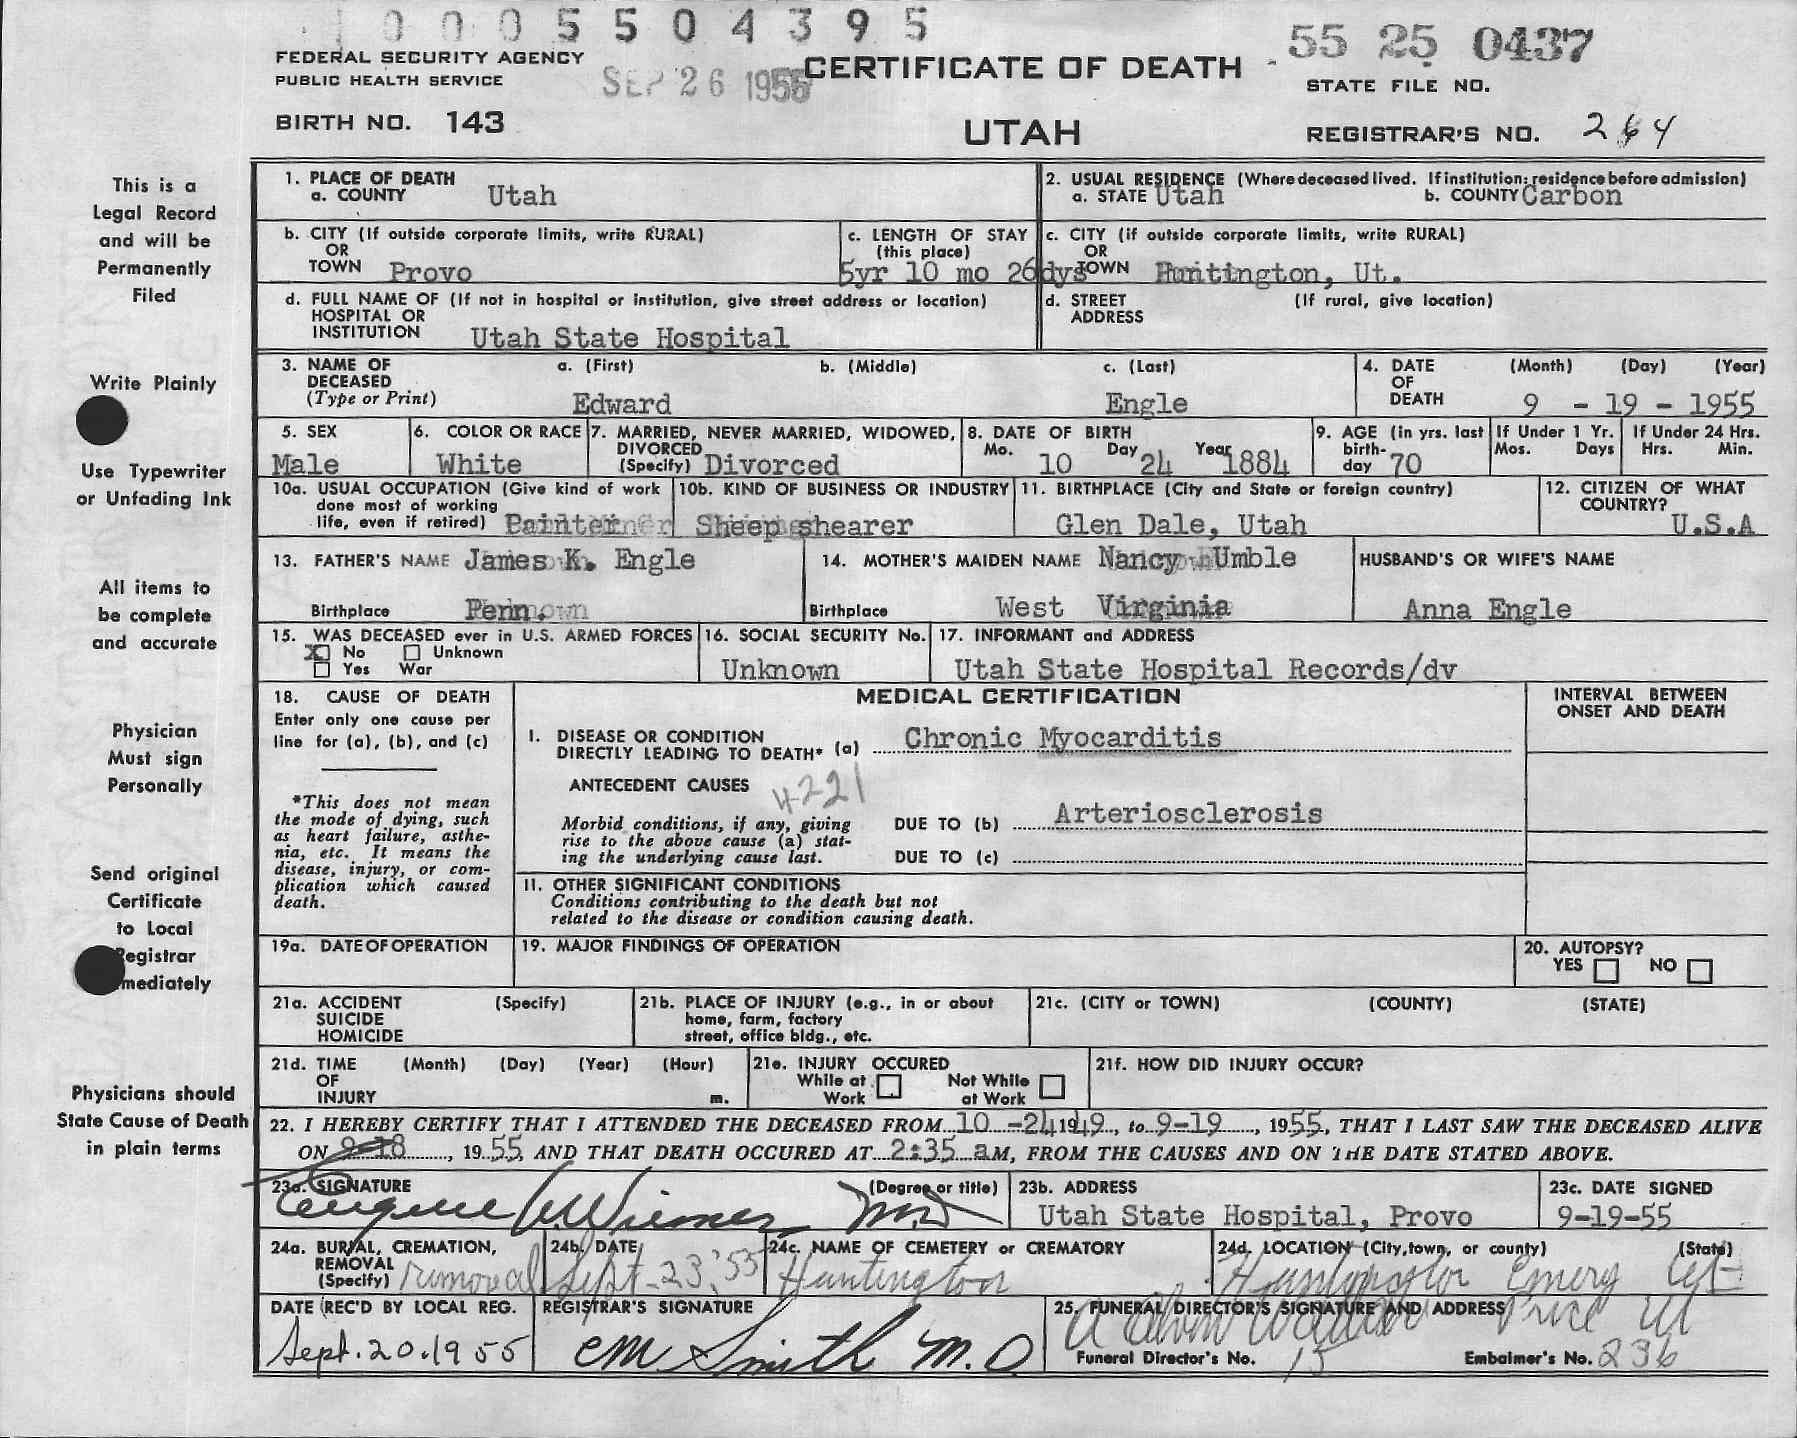 0005504395
55 25 0437
FEDERAL SECURITY AGENCY
PUBLIC HEALTH SERVICE
SEP 26 1955
CERTIFICATE OF DEATH
STATE FILE NO.
BIRTH NO. 143
UTAH
REGISTRAR'S NO. 264
This is a
Legal Record
and will be
Permanently
Filed
Write Plainly
Use Typewriter
or Unfading Ink
All items to
be complete
and accurate
Physician
Must sign
Personally
Send original
Certificate
to Local
Registrar
mediately
Physicians should
State Cause of Death
in plain terms
1. PLACE OF DEATH
a. COUNTY Utah
2. USUAL RESIDENCE (Where deceased lived. If institution: residence before admission)
a. STATE Utah b. COUNTY Carbon
b. CITY (If outside corporate limits, write RURAL)
OR
TOWN Provo
c. LENGTH OF STAY
(this place)
5yr 10 mo 26dys
c. CITY (if outside corporate limits, write RURAL)
OR
TOWN Huntington, Ut.
d. FULL NAME OF (If not in hospital or institution, give street address or location)
HOSPITAL OR
INSTITUTION Utah State Hospital
d. STREET (If rural, give location)
ADDRESS
3. NAME OF a. (First) b. (Middle) c. (Last)
DECEASED
(Type or Print) Edward Engle
4. DATE (Month) (Day) (Year)
OF
DEATH 9 - 19 - 1955
5. SEX
Male
6. COLOR OR RACE
White
7. MARRIED, NEVER MARRIED, WIDOWED,
DIVORCED
(Specify) Divorced
8. DATE OF BIRTH
Mo. 10 Day 24 Year 1884
9. AGE (in yrs. last
birth-
day 70
If Under 1 Yr.
Mos. Days
If Under 24 Hrs.
Hrs. Min.
10a. USUAL OCCUPATION (Give kind of work
done most of working
life, even if retired) Painter
10b. KIND OF BUSINESS OR INDUSTRY
Sheep shearer
11. BIRTHPLACE (City and State or foreign country)
Glen Dale, Utah
12. CITIZEN OF WHAT
COUNTRY?
U.S.A
13. FATHER'S NAME James K. Engle
Birthplace Penn.
14. MOTHER'S MAIDEN NAME Nancy Umble
Birthplace West Virginia
HUSBAND'S OR WIFE'S NAME
Anna Engle
15. WAS DECEASED ever in U.S. ARMED FORCES
X No Unknown
Yes War
16. SOCIAL SECURITY No.
Unknown
17. INFORMANT and ADDRESS
Utah State Hospital Records/dv
18. CAUSE OF DEATH
Enter only one cause per
line for (a), (b), and (c)
*This does not mean
the mode of dying, such
as heart failure, asthe-
nia, etc. It means the
disease, injury, or com-
plication which caused
death.
MEDICAL CERTIFICATION
INTERVAL BETWEEN
ONSET AND DEATH
I. DISEASE OR CONDITION
DIRECTLY LEADING TO DEATH* (a) Chronic Myocarditis
ANTECEDENT CAUSES 4221
Morbid conditions, if any, giving
rise to the above cause (a) stat-
ing the underlying cause last.
DUE TO (b) Arteriosclerosis
DUE TO (c)
II. OTHER SIGNIFICANT CONDITIONS
Conditions contributing to the death but not
related to the disease or condition causing death.
19a. DATE OF OPERATION
19. MAJOR FINDINGS OF OPERATION
20. AUTOPSY?
YES NO
21a. ACCIDENT (Specify)
SUICIDE
HOMICIDE
21b. PLACE OF INJURY (e.g., in or about
home, farm, factory
street, office bldg., etc.
21c. (CITY or TOWN) (COUNTY) (STATE)
21d. TIME (Month) (Day) (Year) (Hour)
OF
INJURY m.
21e. INJURY OCCURED
While at Work Not While at Work
21f. HOW DID INJURY OCCUR?
22. I HEREBY CERTIFY THAT I ATTENDED THE DECEASED FROM 10 -24 1949, to 9-19, 1955, THAT I LAST SAW THE DECEASED ALIVE
ON 9-18, 1955, AND THAT DEATH OCCURED AT 2:35 aM, FROM THE CAUSES AND ON THE DATE STATED ABOVE.
23a. SIGNATURE (Degree or title)
Eugene Wiemer MD
23b. ADDRESS
Utah State Hospital, Provo
23c. DATE SIGNED
9-19-55
24a. BURIAL, CREMATION,
REMOVAL
(Specify) removal
24b. DATE
Sept. 23, '55
24c. NAME OF CEMETERY or CREMATORY
Huntington
24d. LOCATION (City, town, or county) (State)
Huntington Emery Ut
DATE REC'D BY LOCAL REG.
Sept. 20. 1955
REGISTRAR'S SIGNATURE
CM Smith M.D
25. FUNERAL DIRECTOR'S SIGNATURE AND ADDRESS
Price Ut
Funeral Director's No. 15
Embalmer's No. 236